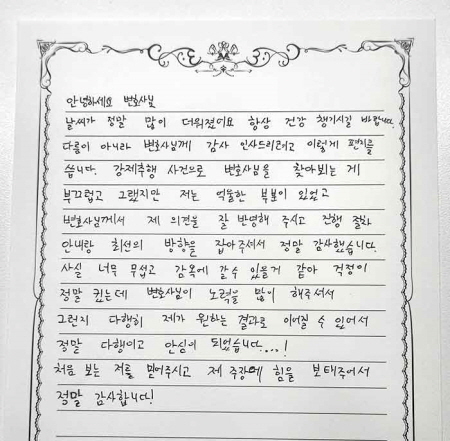 안녕하세요 변호사님
날씨가 정말 많이 더워졌어요 항상 건강 챙기시길 바랍니다.
다름이 아니라 변호사님께 감사 인사드리려고 이렇게 편지를
씁니다. 강제추행 사건으로 변호사님을 찾아뵈는 게
부끄럽고 그랬지만 저는 억울한 부분이 있었고
변호사님께서 제 의견을 잘 반영해 주시고 진행 절차
안내랑 최선의 방향을 잡아주셔서 정말 감사했습니다.
사실 너무 무섭고 감옥에 갈 수 있을거 같아 걱정이
정말 컸는데 변호사님이 노력을 많이 해주셔서
그런지 다행히 제가 원하는 결과로 이어질 수 있어서
정말 다행이고 안심이 되었습니다...!
처음 보는 저를 믿어주시고 제 주장에 힘을 보태주어서
정말 감사합니다!